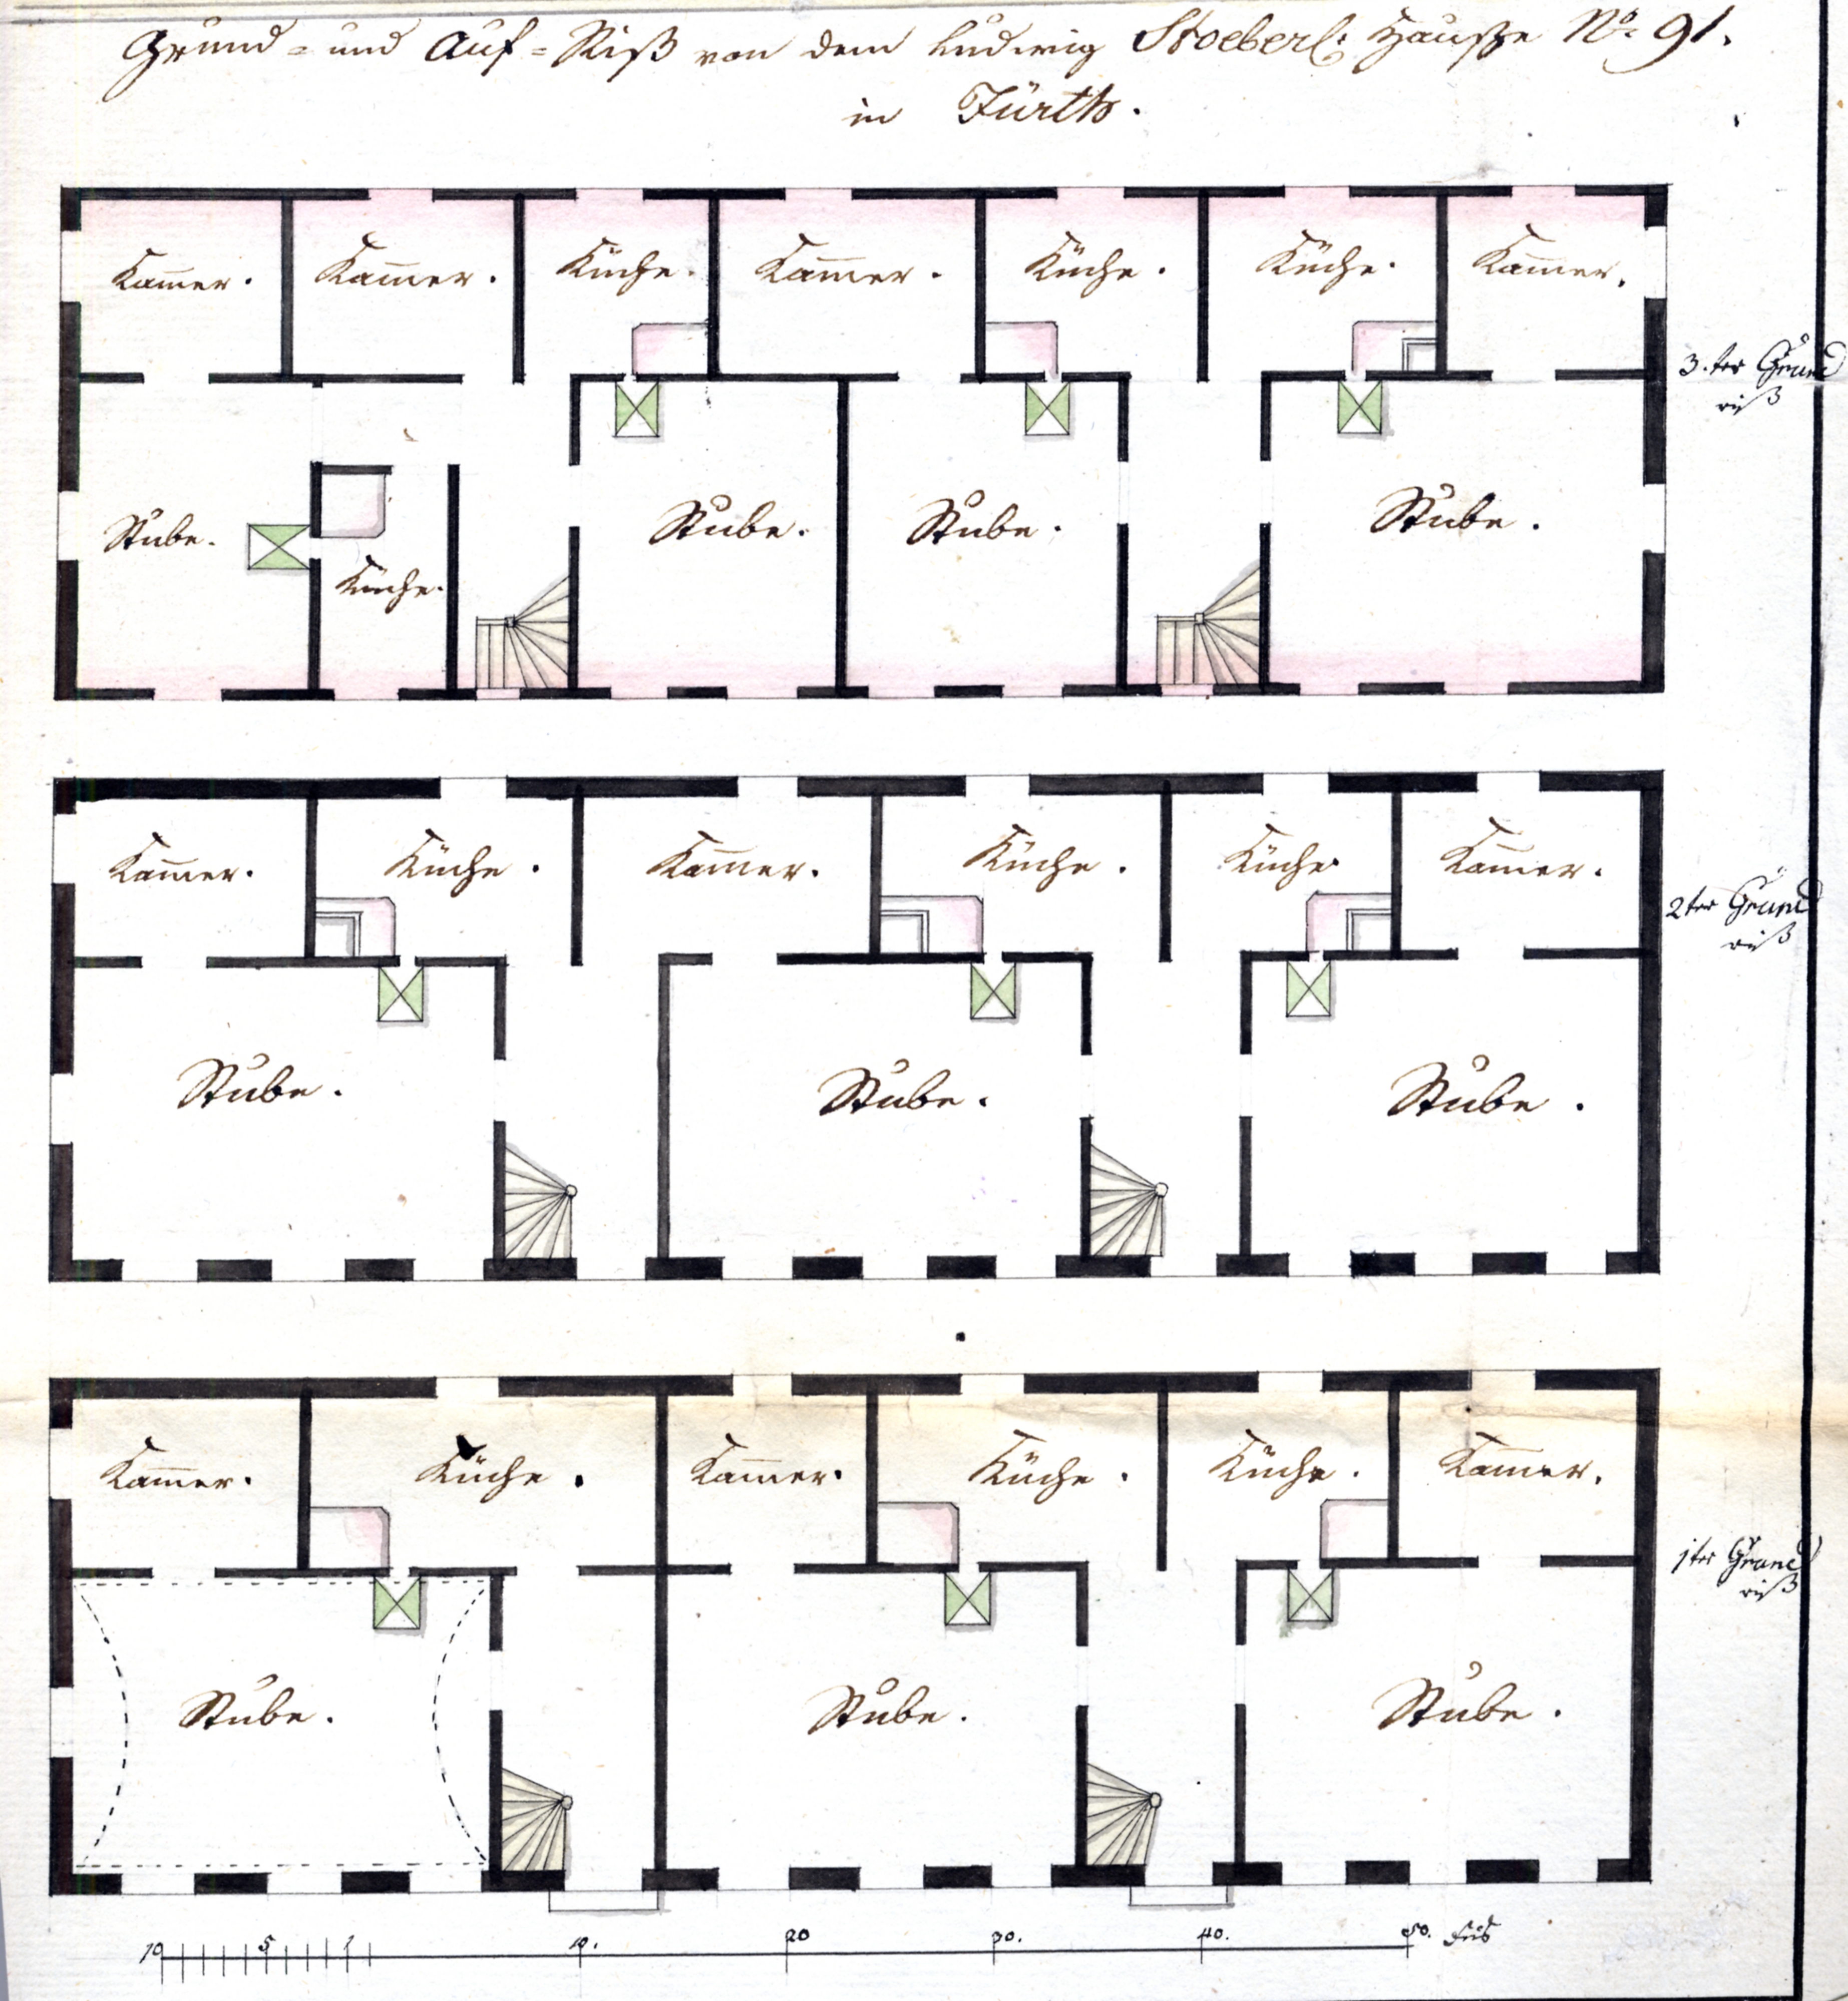 Grund- und Auf-Riß von dem Ludwig Stoeberl: Hauße No. 91.
in Fürth.
Kam̅er. Kam̅er. Küche. Kam̅er. Küche. Küche. Kam̅er.
3.ter Grund
riß
Stube. Küche. Stube. Stube. Stube.
Kam̅er. Küche. Kam̅er. Küche. Küche Kam̅er.
2ter Grund
riß
Stube. Stube. Stube.
Kam̅er. Küche. Kam̅er. Küche. Küche. Kam̅er.
1ter Grund
riß
Stube. Stube. Stube.
10 5 1 10. 20 30. 40. 50. Fus